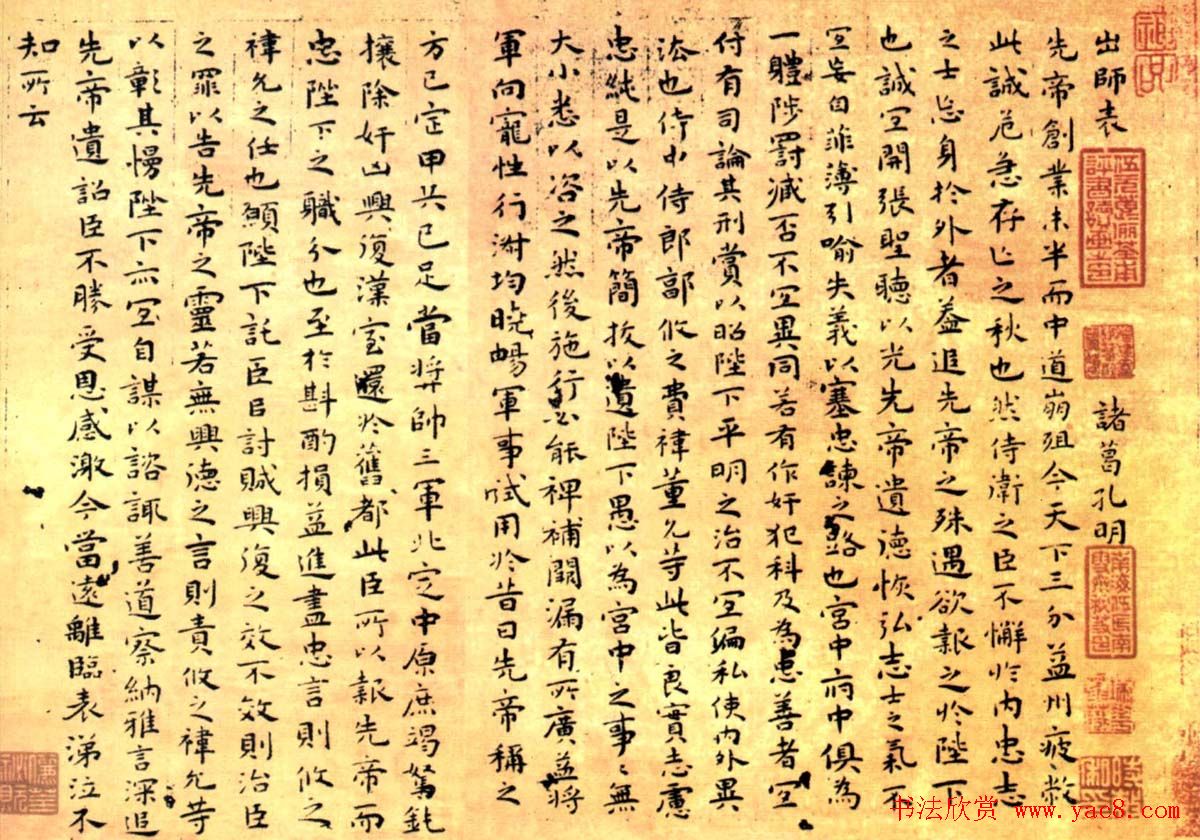 出師表 諸葛孔明
先帝創業未半而中道崩殂今天下三分益州疲敝
此誠危急存亡之秋也然侍衛之臣不懈於內忠志
之士忘身於外者蓋追先帝之殊遇欲報之於陛下
也誠宜開張聖聽以光先帝遺德恢弘志士之氣不
宜妄自菲薄引喻失義以塞忠諫之路也宮中府中俱為
一體陟罰臧否不宜異同若有作奸犯科及為忠善者宜
付有司論其刑賞以昭陛下平明之治不宜偏私使內外異
法也侍中侍郎郭攸之費禕董允等此皆良實志慮
忠純是以先帝簡拔以遺陛下愚以為宮中之事〻無
大小悉以咨之然後施行必能裨補闕漏有所廣益將
軍向寵性行淑均曉暢軍事試用於昔日先帝稱之
方已定甲兵已足當獎帥三軍北定中原庶竭駑鈍
攘除奸凶興復漢室還於舊都此臣所以報先帝而
忠陛下之職分也至於斟酌損益進盡忠言則攸之
禕允之任也願陛下託臣以討賊興復之效不效則治臣
之罪以告先帝之靈若無興德之言則責攸之禕允等
以彰其慢陛下亦宜自謀以諮諏善道察納雅言深追
先帝遺詔臣不勝受恩感激今當遠離臨表涕泣不
知所云
书法欣赏 www.yac8.com